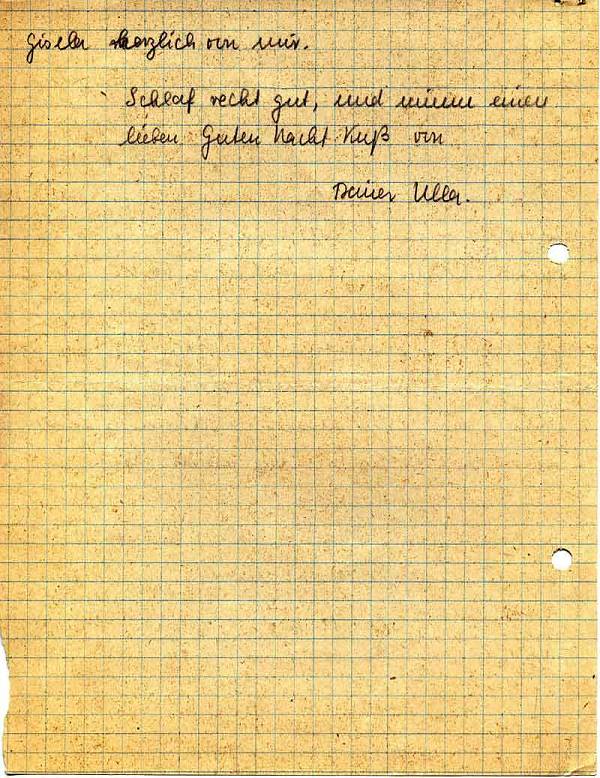 Gisela herzlich von mir.
Schlaf recht gut, und nimm einen
lieben Guten Nacht Kuß von
Deiner Ulla.